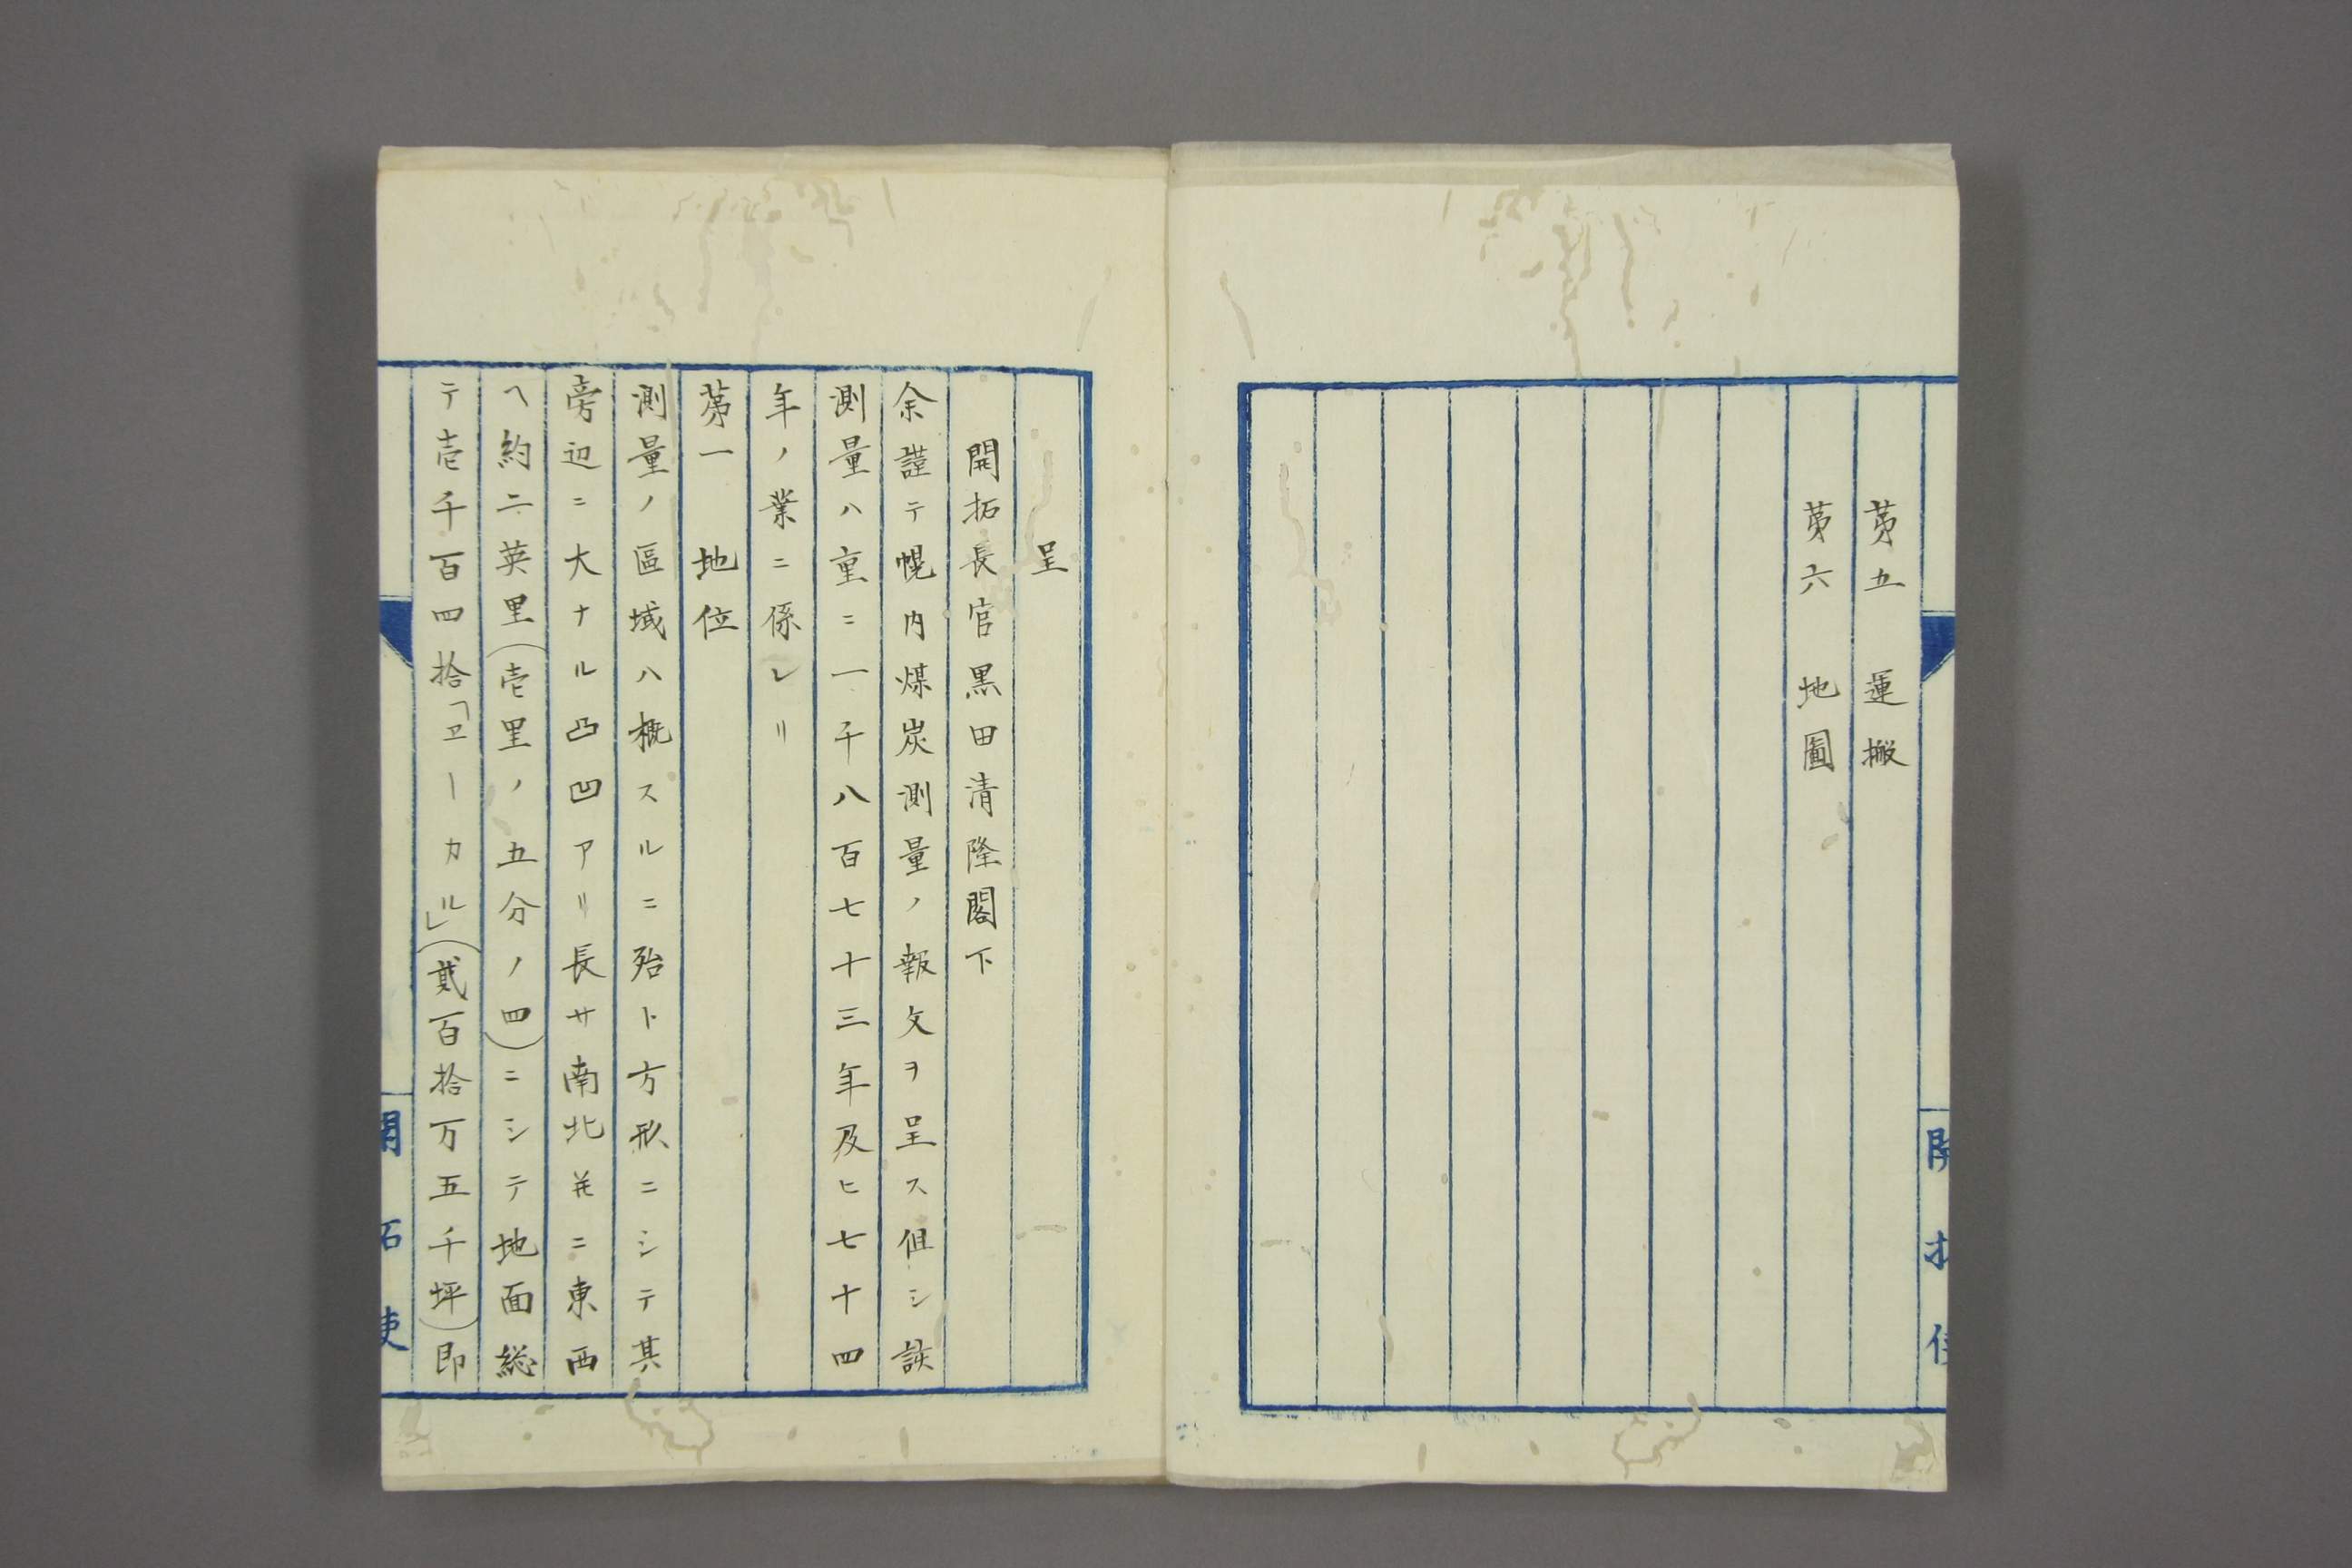 第五　運搬
第六　地圖
開拓使
呈
開拓長官黒田清隆閣下
余謹テ幌内煤炭測量ノ報文ヲ呈ス但シ該
測量ハ重ニ一千八百七十三年及ヒ七十四
年ノ業ニ係レリ
第一　地位
測量ノ區域ハ概スルニ殆ト方形ニシテ其
旁辺ニ大ナル凸凹アリ長サ南北并ニ東西
ヘ約二英里（壱里ノ五分ノ四）ニシテ地面総
テ壱千百四拾「ヱーカル」（貳百拾万五千坪）即
開拓使